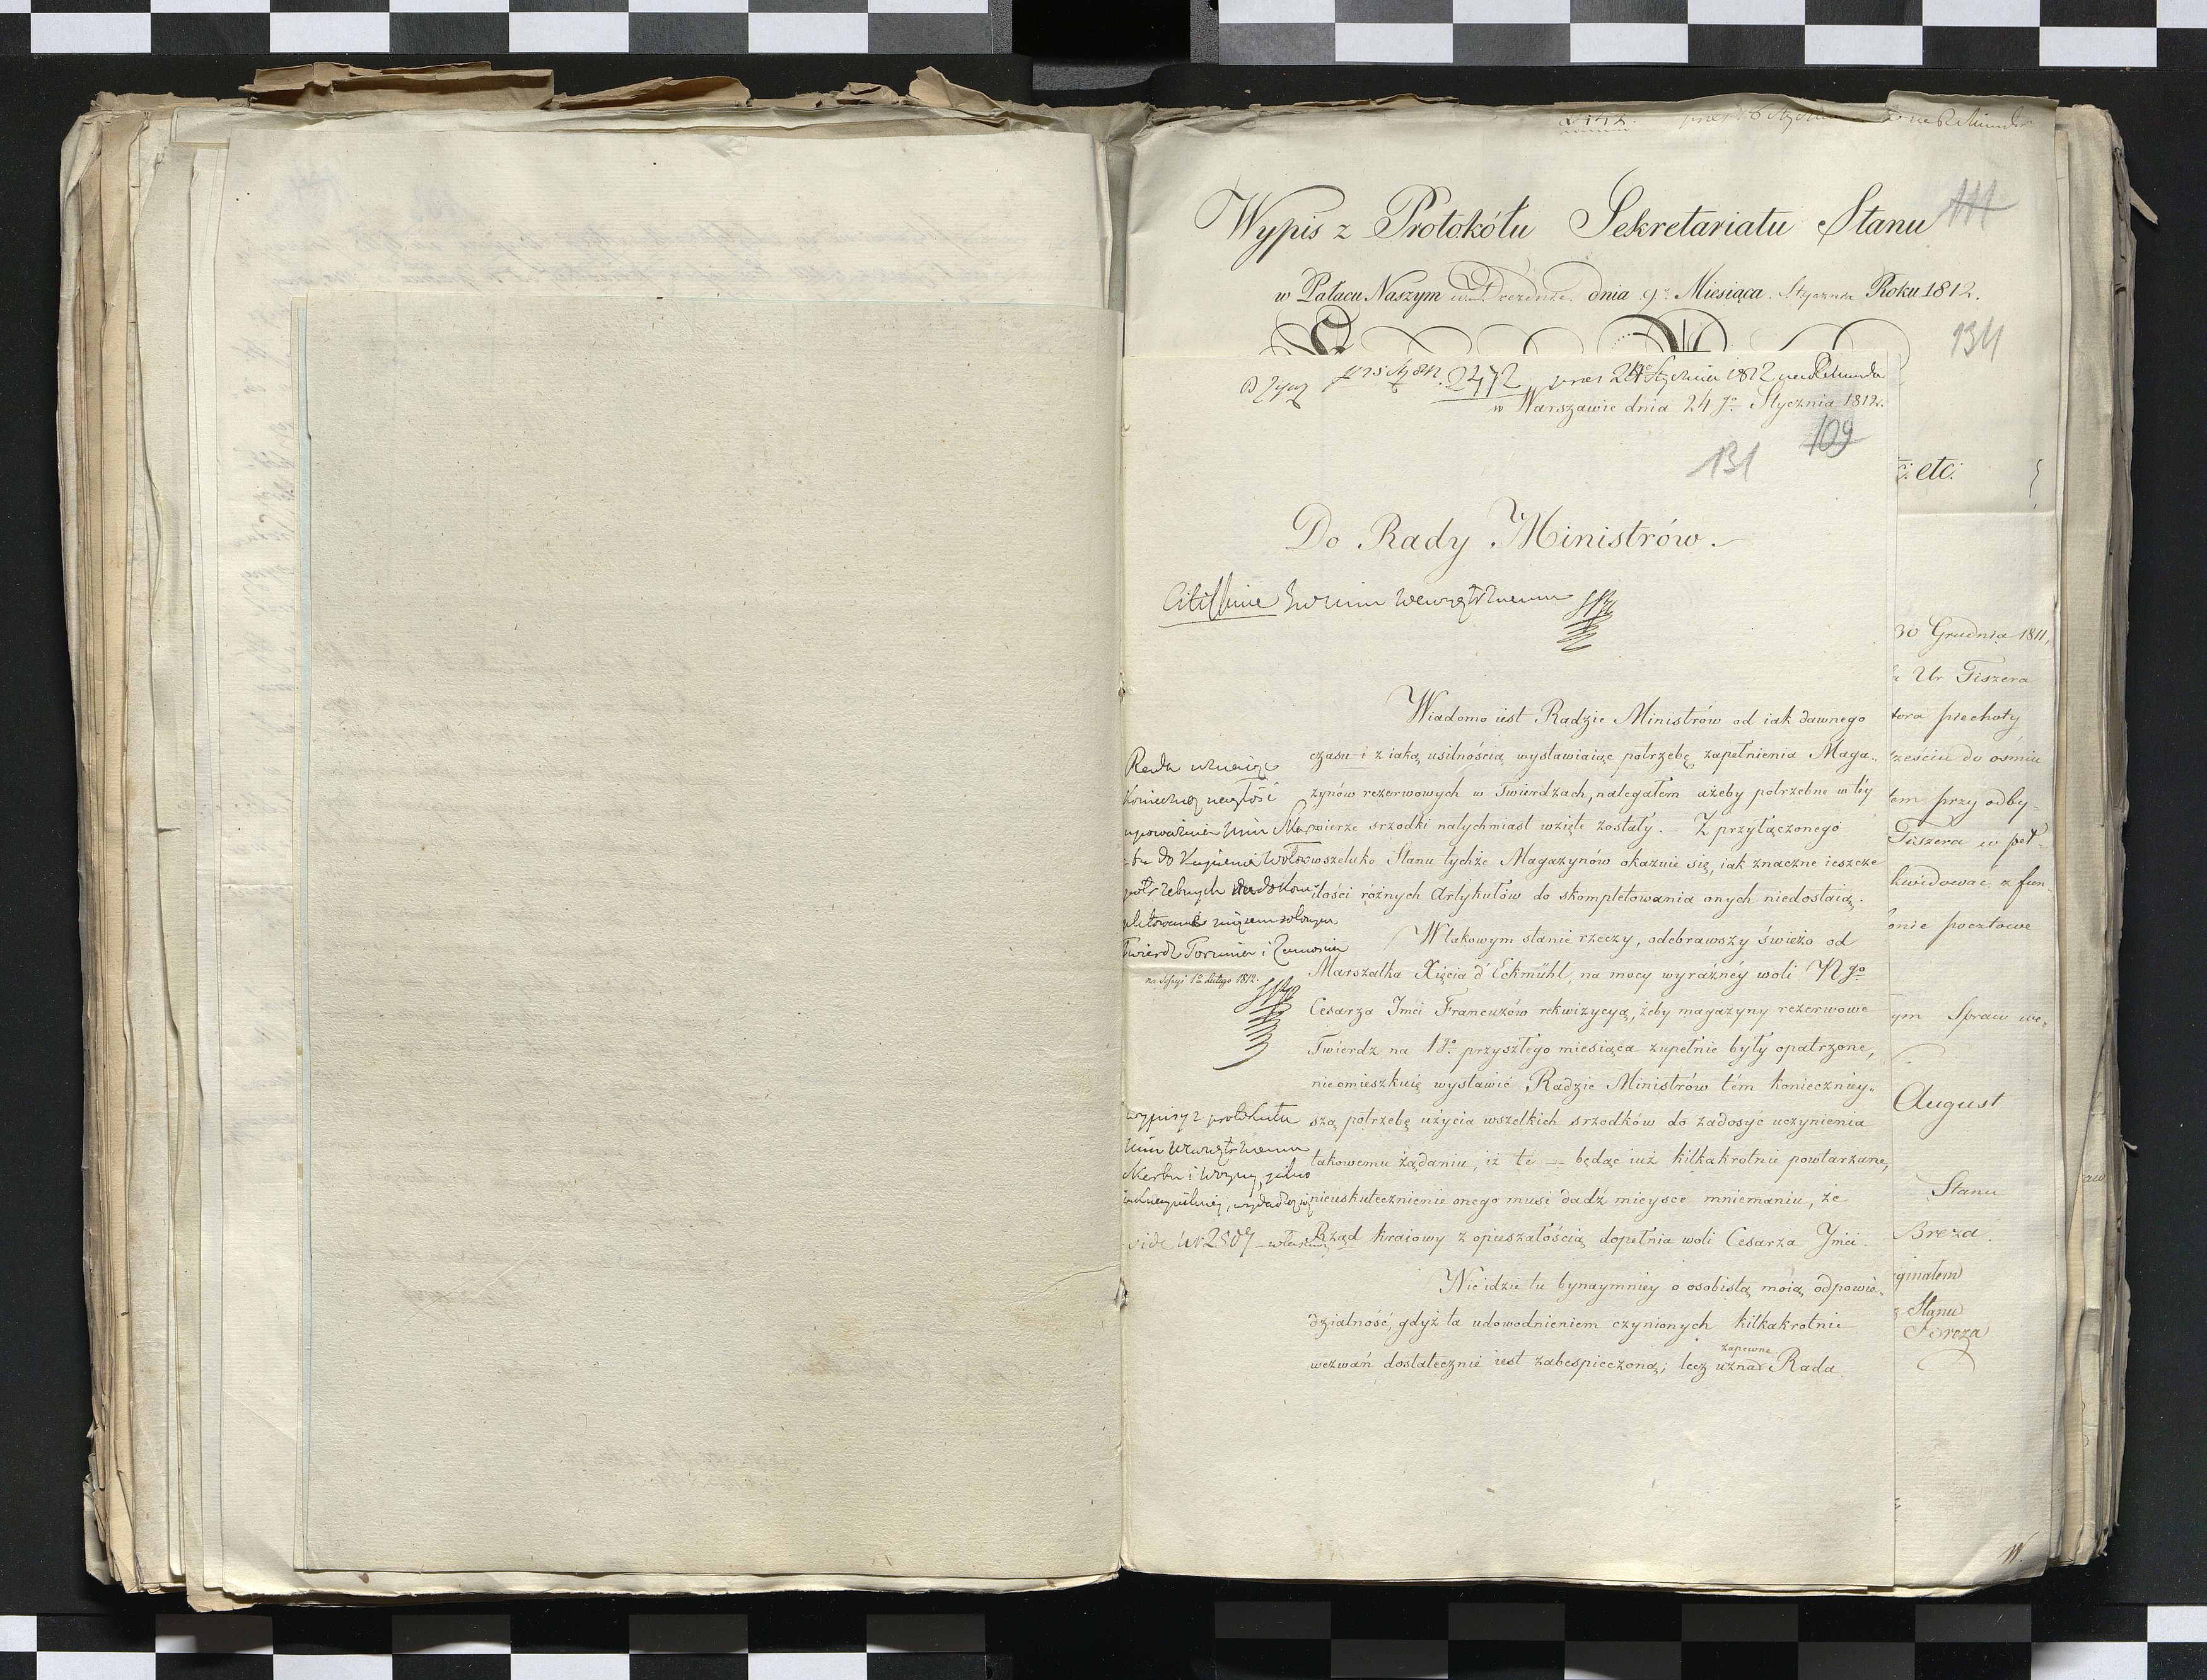 Wypis z Protokółu Sekretariatu Stanu
111
w Pałacu Naszym w Dreźnie dnia 9. Miesiąca Stycznia Roku 1812.
134
2472 24 Stycznia 1812
w Warszawie dnia 24 go Stycznia 1812.
109
131
etc:
Do Rady Ministrów.
Citissime
30 Grudnia 1811,
Ur Fiszera
Wiadomo iest Radzie Ministrów od iak dawnego
piechoty
czasu i z iaką usilnością wystawiaiąc potrzebę zapełnienia Maga-
do ośmiu
zynów rezerwowych w Twierdzach, nalegałem ażeby potrzebne w téy
tem przy odby-
mierze srzodki natychmiast wzięte zostały. Z przyłączonego
Fiszera w peł-
wszeluko Stanu tychże Magazynów okazuie się, iak znaczne ieszcze
kwidować z fun-
ilości różnych Artykułów do skompletowania onych niedostaią.
pocztowe
W takowym stanie rzeczy, odebrawszy świeżo od
Marszałka Xięcia d'Eckmühl, na mocy wyraźnéy woli N go
Cesarza Jmci Francuzów rekwizycyą, żeby magazyny rezerwowe
ym Spraw we-
Twierdz na 1 go przyszłego miesiąca zupełnie były opatrzone,
nieomieszkuię wystawić Radzie Ministrów tém koniecznieỳ-
August
szą potrzebę użycia wszelkich srzodków do zadosyć uczynienia
takowemu żądaniu, iż te — będąc iuż kilkakrotnie powtarzane,
nieuskutecznienie onego musi dadź mieysce mniemaniu, że
Stanu
Rząd kraiowy z opieszałością dopełnia woli Cesarza Jmci
Breza.
Nie idzie tu bynaymniey o osobistą moią odpowie-
ginałem
dzialność, gdyż ta udowodnieniem czynionych kilkakrotnie
Stanu
Breza
zapewne
wezwań dostatecznie iest zabespieczoną; lecz uzna Rada
Rada
konieczną nagłość
upoważnia Min
do kupienia wołów
potrzebnych
Twierdz Torunia i Zamościa
na Sessyi 1 Lutego 1812.
wypisy z protokułu
vide Nr 2507
W.